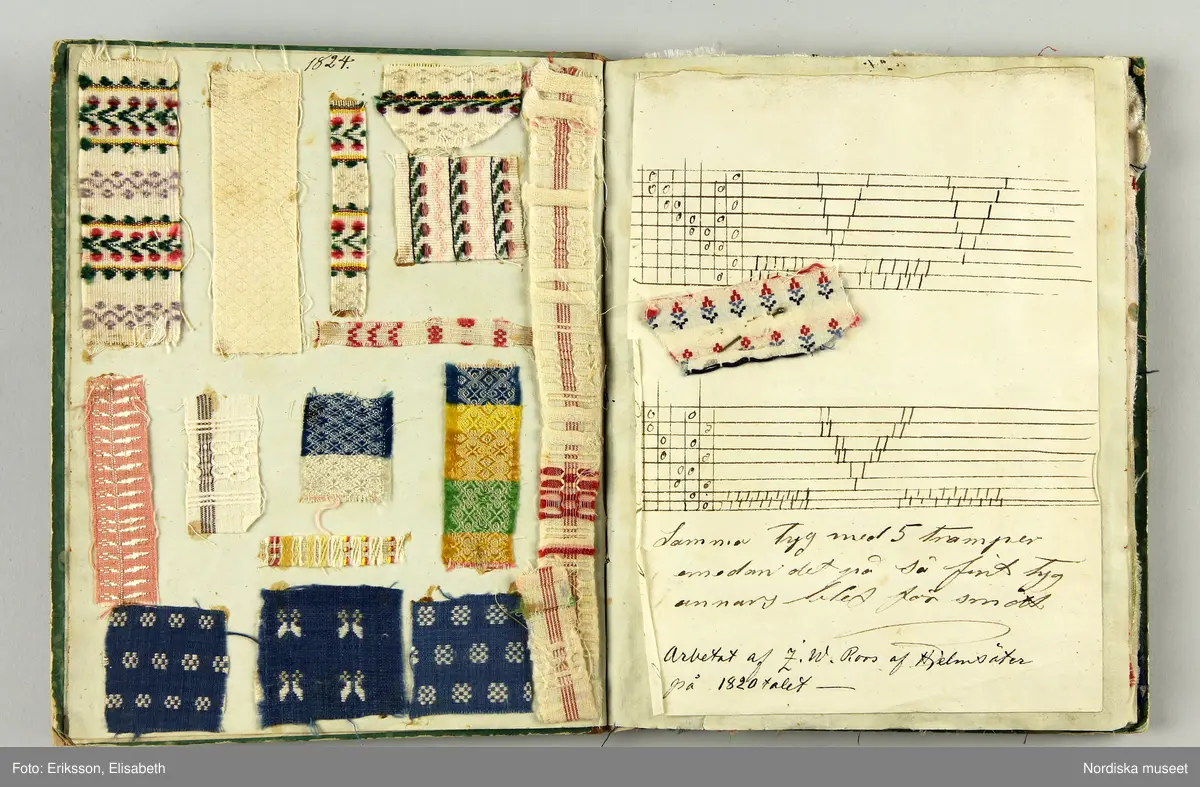 1824.
Samma tyg med 5 tramper
emedan det på så fint tyg
annars blef för smått
Arbetat af Z. W. Roos af Hjelmsäter
på 1820 talet —
Foto: Eriksson, Elisabeth
Nordiska museet